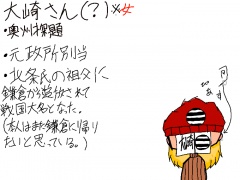 大崎さん(?)※女
・奥州探題
・元政所別当
・北条氏の祖父に
鎌倉から追放されて
戦国大名となった。
(本人はまだ鎌倉に帰り
たいと思っている。)
大崎